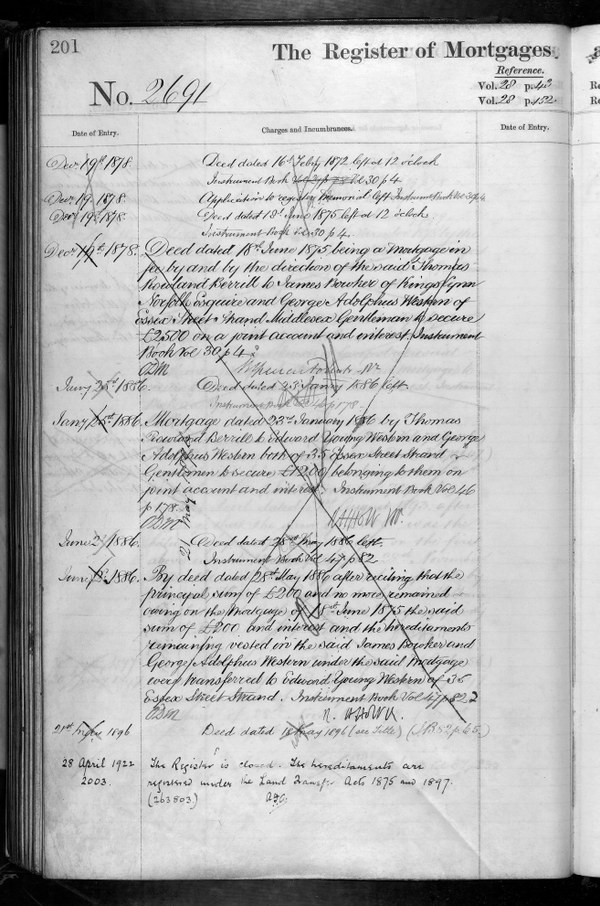 201
The Register of Mortgages.
Reference.
No. 2691
Vol. 28 p. 43
Vol. 28 p. 152
Date of Entry.
Charges and Incumbrances.
Date of Entry.
Decr. 19th 1878.
Deed dated 16th Feby 1872 left at 12 o'clock
Instrument Book Vol 30 p 4.
Decr. 19. 1878.
Application to register memorial left Instrument Book Vol 30 p 4
Decr 19th 1878.
Deed dated 18th June 1875 left at 12 o'clock
Instrument Book Vol 30 p 4.
Decr. 19th 1878.
Deed dated 18th June 1875 being a Mortgage in
fee by and by the direction of the said Thomas
Rowland Berrill to James Bowker of Kings Lynn
Norfolk Esquire and George Adolphus Western of
Essex Street Strand Middlesex Gentleman to secure
£2,500 on a joint account and interest. Instrument
Book Vol 30 p 4
Jany 25th 1886.
Deed dated 23 Jany 1886 left
Instrument Book Vol 46 p 178.
Jany 25th 1886.
Mortgage dated 23rd January 1886 by Thomas
Rowland Berrill to Edward Young Western and George
Adolphus Western both of 35 Essex Street Strand
Gentlemen to secure £1200 belonging to them on
joint account and interest. Instrument Book Vol 46
p 178
June 2 1886.
Deed dated 28th May 1886 left
Instrument Book Vol 47 p 82
June 2 1886.
By deed dated 28th May 1886 after reciting that the
principal sum of £200 and no more remained
owing on the Mortgage of 18th June 1875 the said
sum of £200 and interest and the hereditaments
remaining vested in the said James Bowker and
George Adolphus Western under the said Mortgage
were transferred to Edward Young Western of 35
Essex Street Strand. Instrument Book Vol 47 p 82
21st 1896
Deed dated May 1896 (see Title)
28 April 1922
The Register is closed. The hereditaments are
2003.
registered under the Land Transfer Acts 1875 and 1897.
(263803)